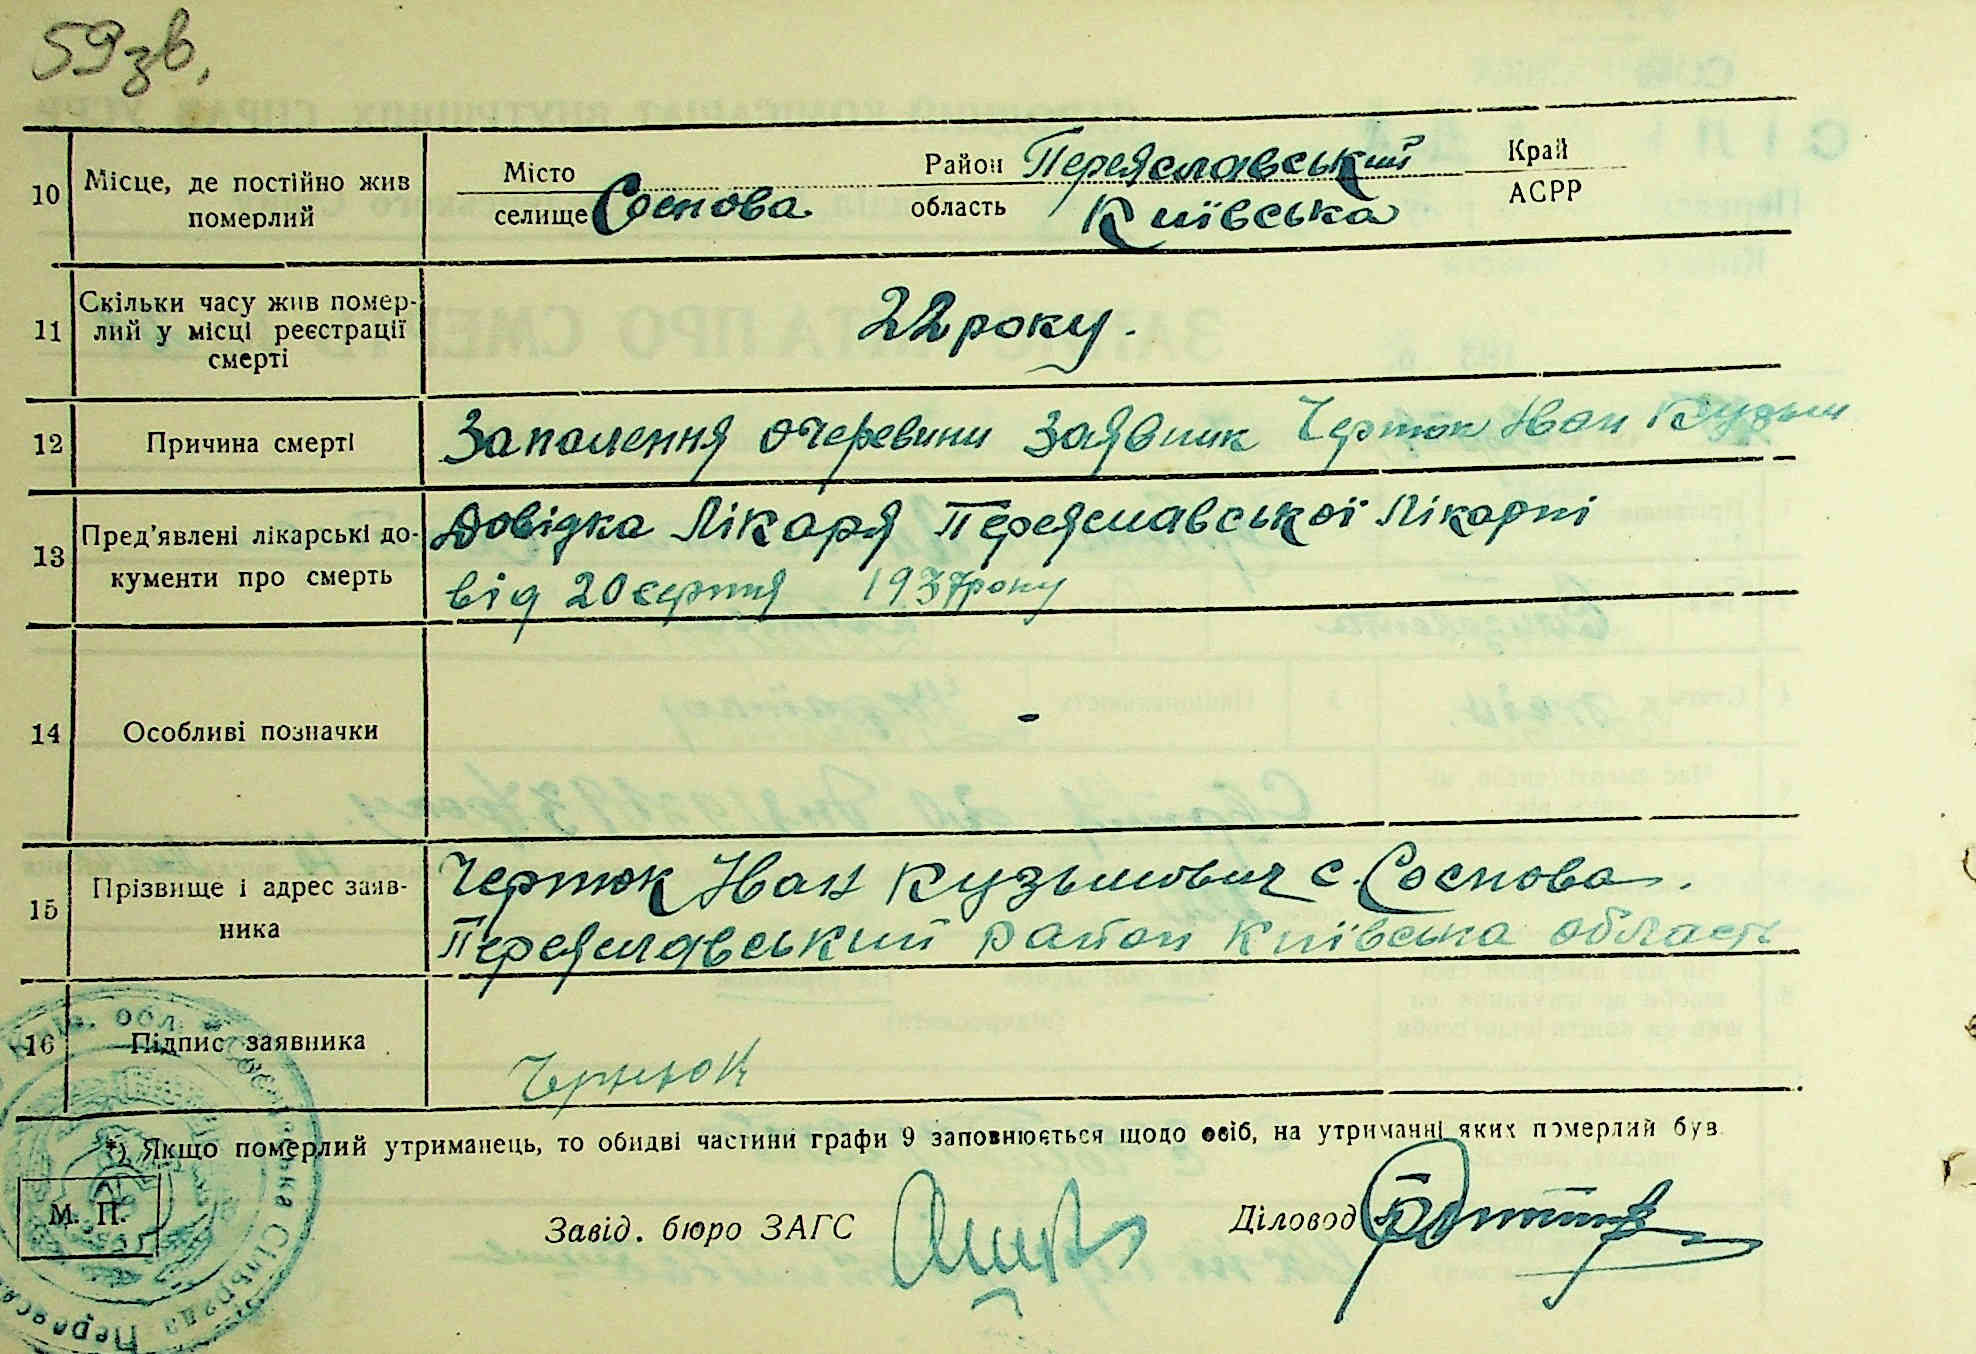 59зв.
10 Місце, де постійно жив померлий
Місто селище Соснова Район Переяславський область Київська Край АСРР
11 Скільки часу жив помер-
лий у місці реєстрації
смерті
22 року.
12 Причина смерті
Запалення очеревини Заявник Чертюк Иван Кузьм
13 Пред'явлені лікарські до-
кументи про смерть
Довідка Лікаря Переяславської Лікарні
від 20 серпня 1937 року
14 Особливі позначки
-
15 Прізвище і адрес заяв-
ника
Чертюк Иван Кузьмович с. Соснова.
Переяславський район Київська область
16 Підпис заявника
Чертюк
*) Якщо померлий утриманець, то обидві частини графи 9 заповнюється щодо осіб, на утриманні яких померлий був
М. П.
Завід. бюро ЗАГС
Діловод